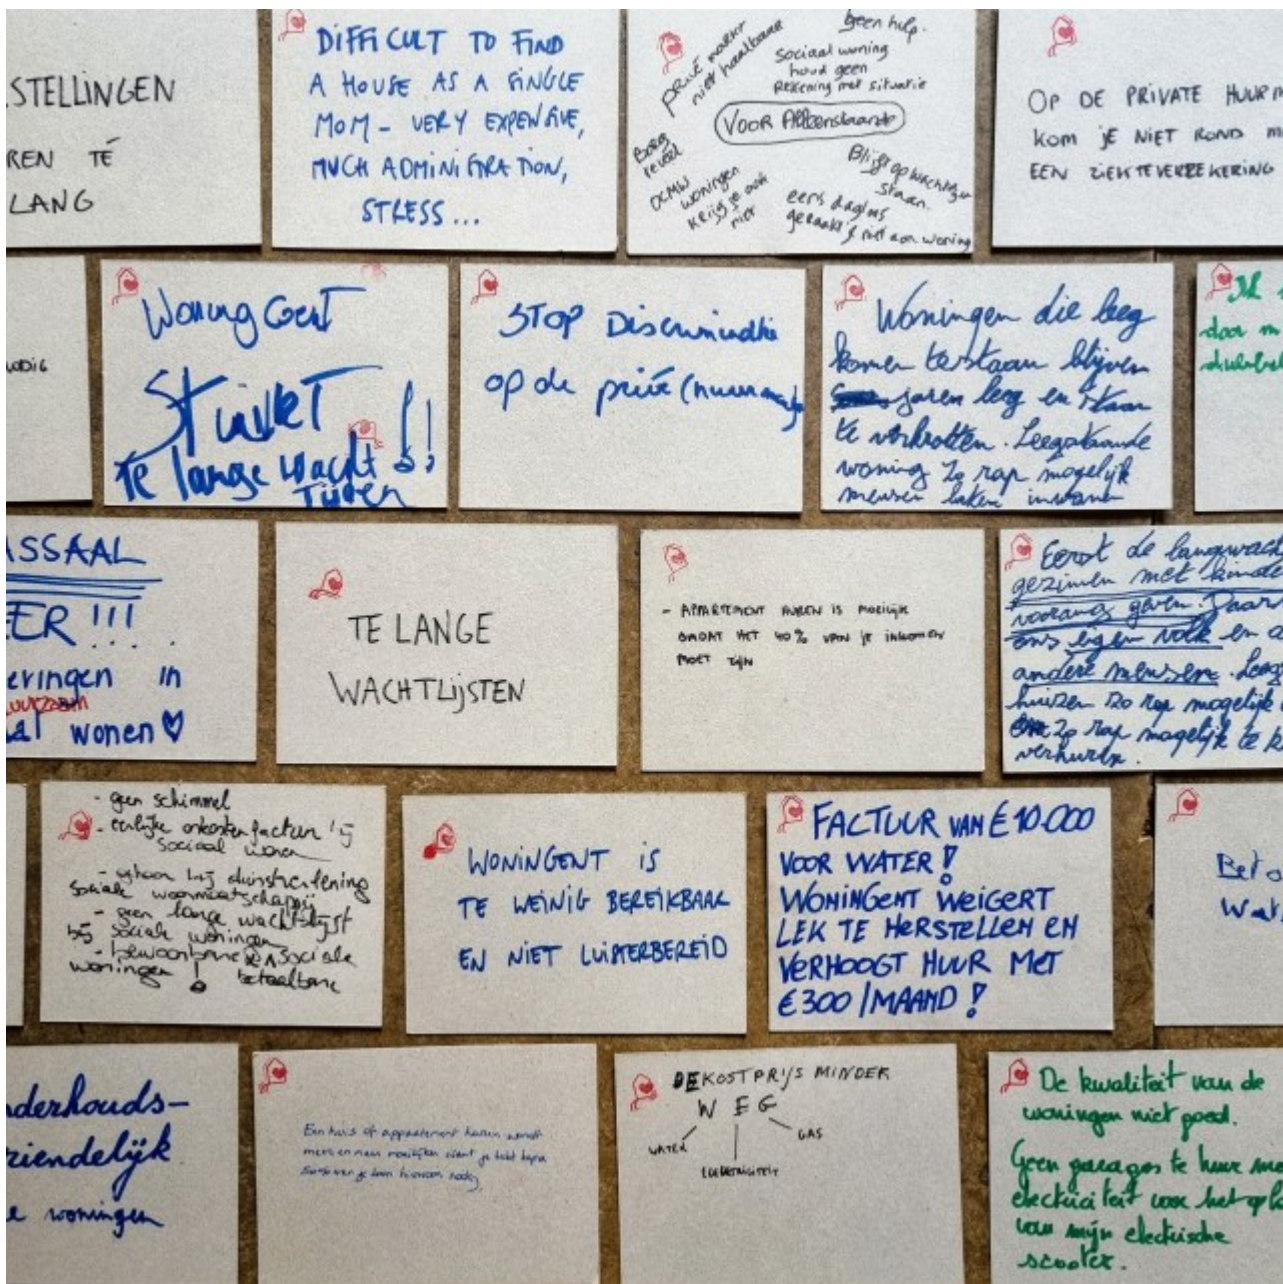 STELLINGEN
REN TÉ
LANG
DIFFICULT TO FIND
A HOUSE AS A SINGLE
MOM - VERY EXPENSIVE,
MUCH ADMINISTRATION,
STRESS...
privé markt
niet haalbaar
geen hulp.
Sociaal woning
houd geen
Rekening met situatie
VOOR Alleenstaande
Borg
teveel
OCMW
woningen
krijg je ook
niet
Blijft op wachtlijst
staan.
eens dagloos
geraakt je niet aan woning
OP DE PRIVATE HUURM
KOM JE NIET ROND M
EEN ZIEKTEVERZEKERING
ODIG
Woning Gent
STINKT !!
Te lange wacht
Tijden
STOP Discriminatie
op de privé (huurmarkt
Woningen die leeg
komen te staan blijven
jaren leeg en staan
te verkrotten. Leegstaande
woning zo rap mogelijk
mensen laten inwonen
Ik
door m
ASSAAL
ER !!!
eringen in
uurzaam
al wonen ♡
TE LANGE
WACHTLIJSTEN
- APPARTEMENT HUREN IS MOEILIJK
OMDAT HET 40% VAN JE INKOMEN
MOET ZIJN
Eerst de langwach
gezinnen met kinde
voorang geven. Daar
ons eigen volk en d
andere mensen. Leeg
huizen zo rap mogelijk
zo rap mogelijk te k
verhuren.
- geen schimmel
- eerlijke onkosten factuur bij
sociaal wonen
- bij dienstverlening
sociale woonmaatschappij
- geen lange wachtlijst
bij sociale woningen
- bewoonbare en sociale
woningen ! betaalbare
WONINGENT IS
TE WEINIG BEREIKBAAR
EN NIET LUISTERBEREID
FACTUUR VAN € 10.000
VOOR WATER !
WONINGENT WEIGERT
LEK TE HERSTELLEN EN
VERHOOGT HUUR MET
€ 300 /MAAND !
Beta
Wat
nderhouds-
riendelijk
e woningen
Een huis of appartement huren wordt
meer en meer moeilijker want je hebt bijna
je loon hiervoor nodig.
DE KOSTPRIJS MINDER
W E G
WATER
ELEKTRICITEIT
GAS
De kwaliteit van de
woningen niet goed.
Geen garages te huur me
electriciteit voor het opl
van mijn electrische
scooter.